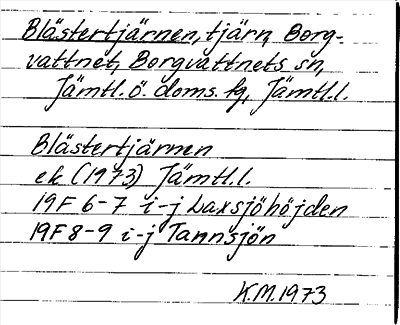 Blästertjärnen, tjärn, Borg-
vattnet, Borgvattnets sn,
Jämtl. ö. doms. fg, Jämtl.l.
Blästertjärnen
ek (1973) Jämtl.l.
19F 6-7 i-j Laxsjöhöjden
19F 8-9 i-j Tannsjön
K.M. 1973